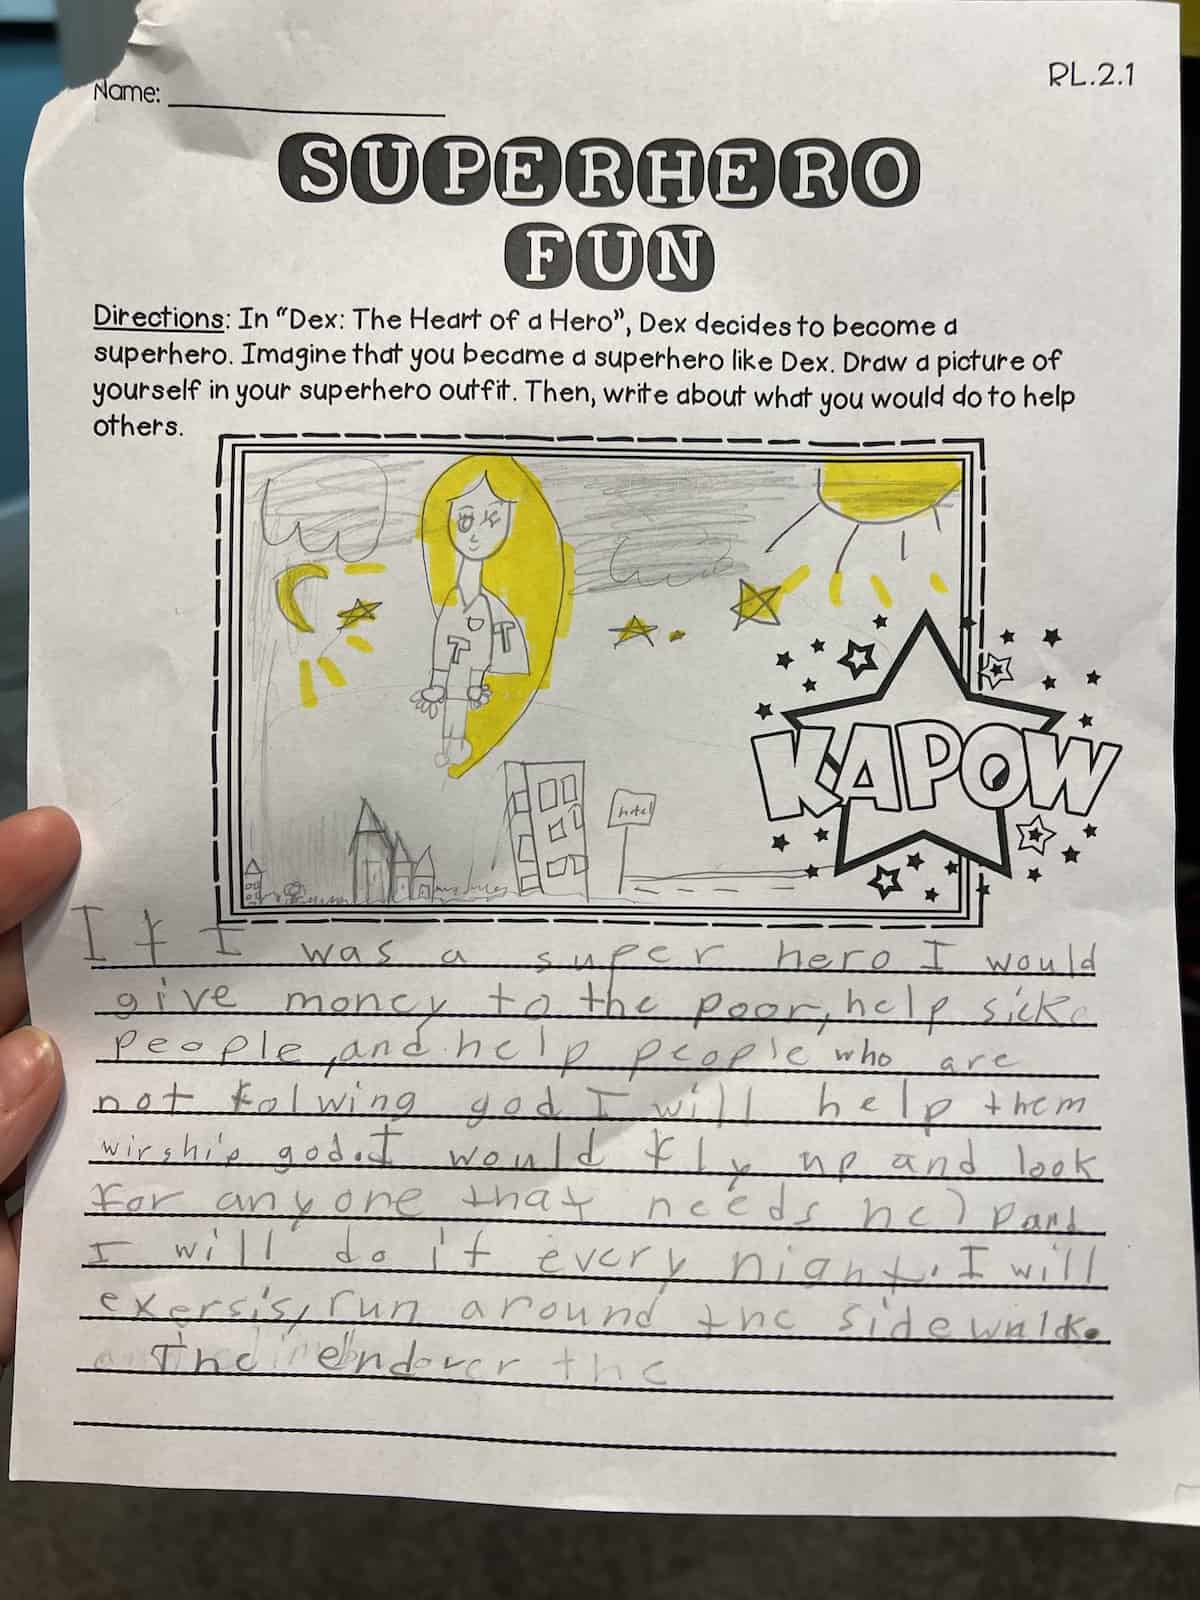 RL.2.1
Name:
SUPERHERO
FUN
Directions: In "Dex: The Heart of a Hero", Dex decides to become a
superhero. Imagine that you became a superhero like Dex. Draw a picture of
yourself in your superhero outfit. Then, write about what you would do to help
others.
T T
hotel
KAPOW
If I was a super hero I would
give money to the poor, help sick
people, and help people who are
not folwing god I will help them
wirship god. I would fly up and look
for anyone that needs help and
I will do it every night. I will
exersis, run around the sidewalk.
The end over the